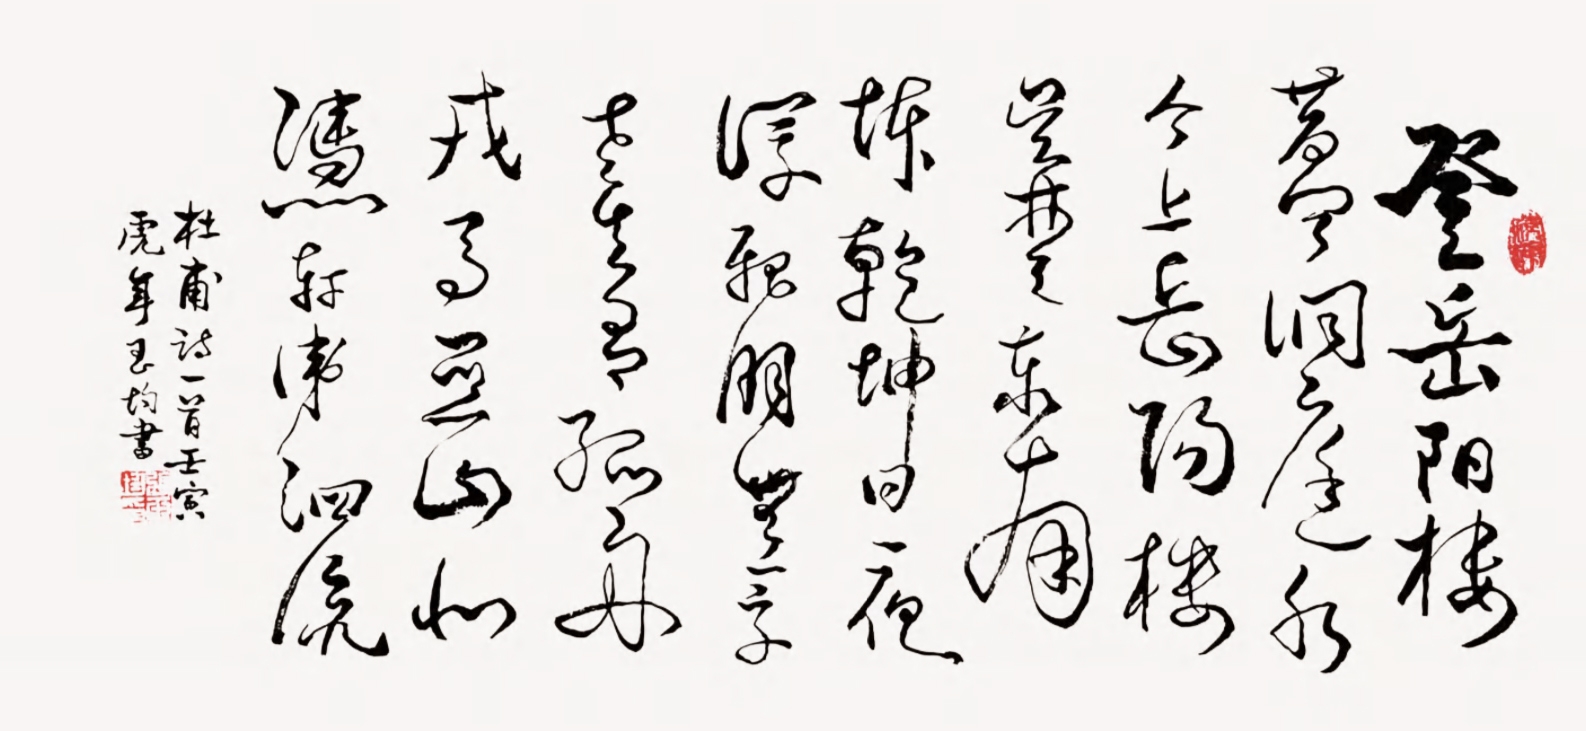 登岳阳楼
昔闻洞庭水
今上岳陽楼
吴楚东南
坼乾坤日夜
浮親朋無一字
老病有孤舟
戎马关山北
憑轩涕泗流
杜甫诗一首壬寅
虎年玉均書